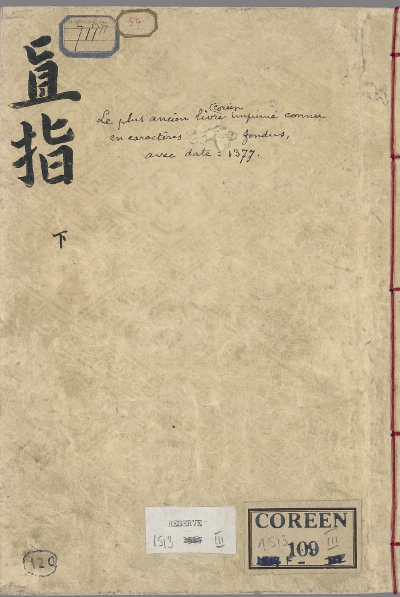 直指
下
711
59
Coréen
Le plus ancien livre imprimé connu
en caractères fondus,
avec date = 1377.
RESERVE
1513 III
COREEN
1513 III
109
F
120